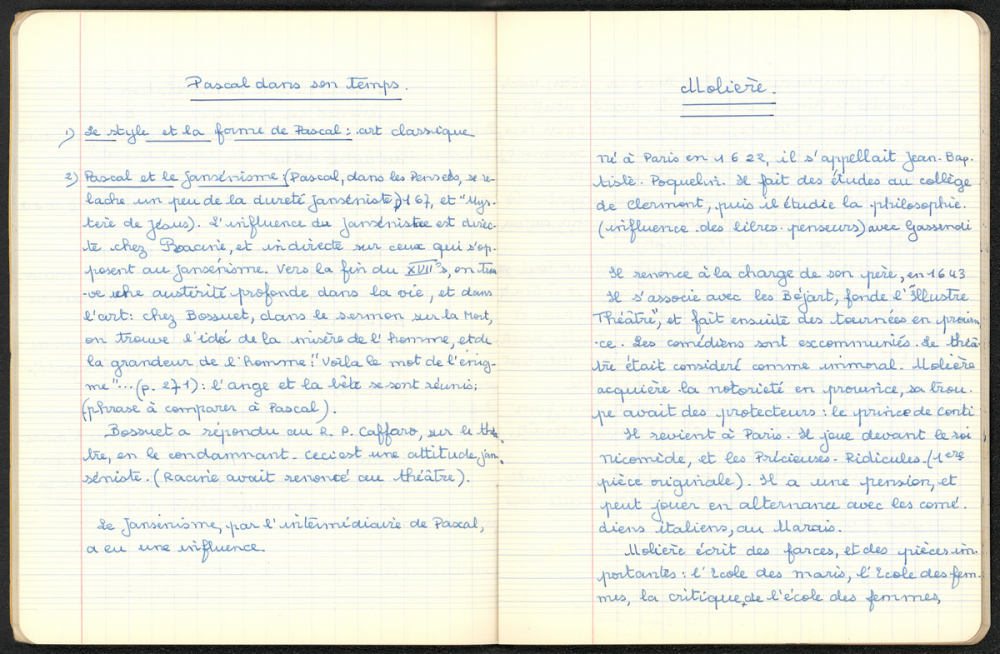 Pascal dans son temps.
1) Le style et la forme de Pascal : art classique
2) Pascal et le Jansénisme : (Pascal, dans les Pensées, se re-
lache un peu de la dureté Janséniste, p 167, et "Mys-
tère de Jésus). L'influence du Jansénisme est direc-
te chez Racine, et indirecte sur ceux qui s'op-
posent au Jansénisme. Vers la fin du XVIIe s, on trou
-ve une austérité profonde dans la vie, et dans
l'art : chez Bossuet, dans le sermon sur la Mort,
on trouve l'idée de la misère de l'homme, et de
la grandeur de l'homme : "Voilà le mot de l'énig-
me"... (p. 271) : l'ange et la bête se sont réunis ;
(phrase à comparer à Pascal).
Bossuet a répondu au R. P. Caffaro, sur le thé-
tre, en le condamnant. ceci est une attitude, jan-
séniste. (Racine avait renoncé au théâtre).
Le Jansénisme, par l'intermédiaire de Pascal,
a eu une influence.
Molière.
né à Paris en 1622, il s'appellait Jean-Bap-
tiste. Poquelin. Il fait des études au collège
de Clermont, puis il étudie la philosophie.
(influence des libres-penseurs) avec Gassendi
Il renonce à la charge de son père, en 1643
Il s'associe avec les Béjart, fonde l'"Illustre
Théâtre", et fait ensuite des tournées en provin
-ce. Les comédiens sont excommuniés. Le théâ-
tre était consideré comme immoral. Molière
acquière la notoriété en province, sa trou-
pe avait des protecteurs : le prince de Conti
Il revient à Paris. Il joue devant le roi
Nicomède, et les Précieuses-Ridicules. (1ère
pièce originale). Il a une pension, et
peut jouer en alternance avec les comé-
diens italiens, au Marais.
Molière écrit des farces, et des pièces im-
portantes : l'Ecole des maris, l'Ecole des fem-
mes, la critique, de l'école des femmes,